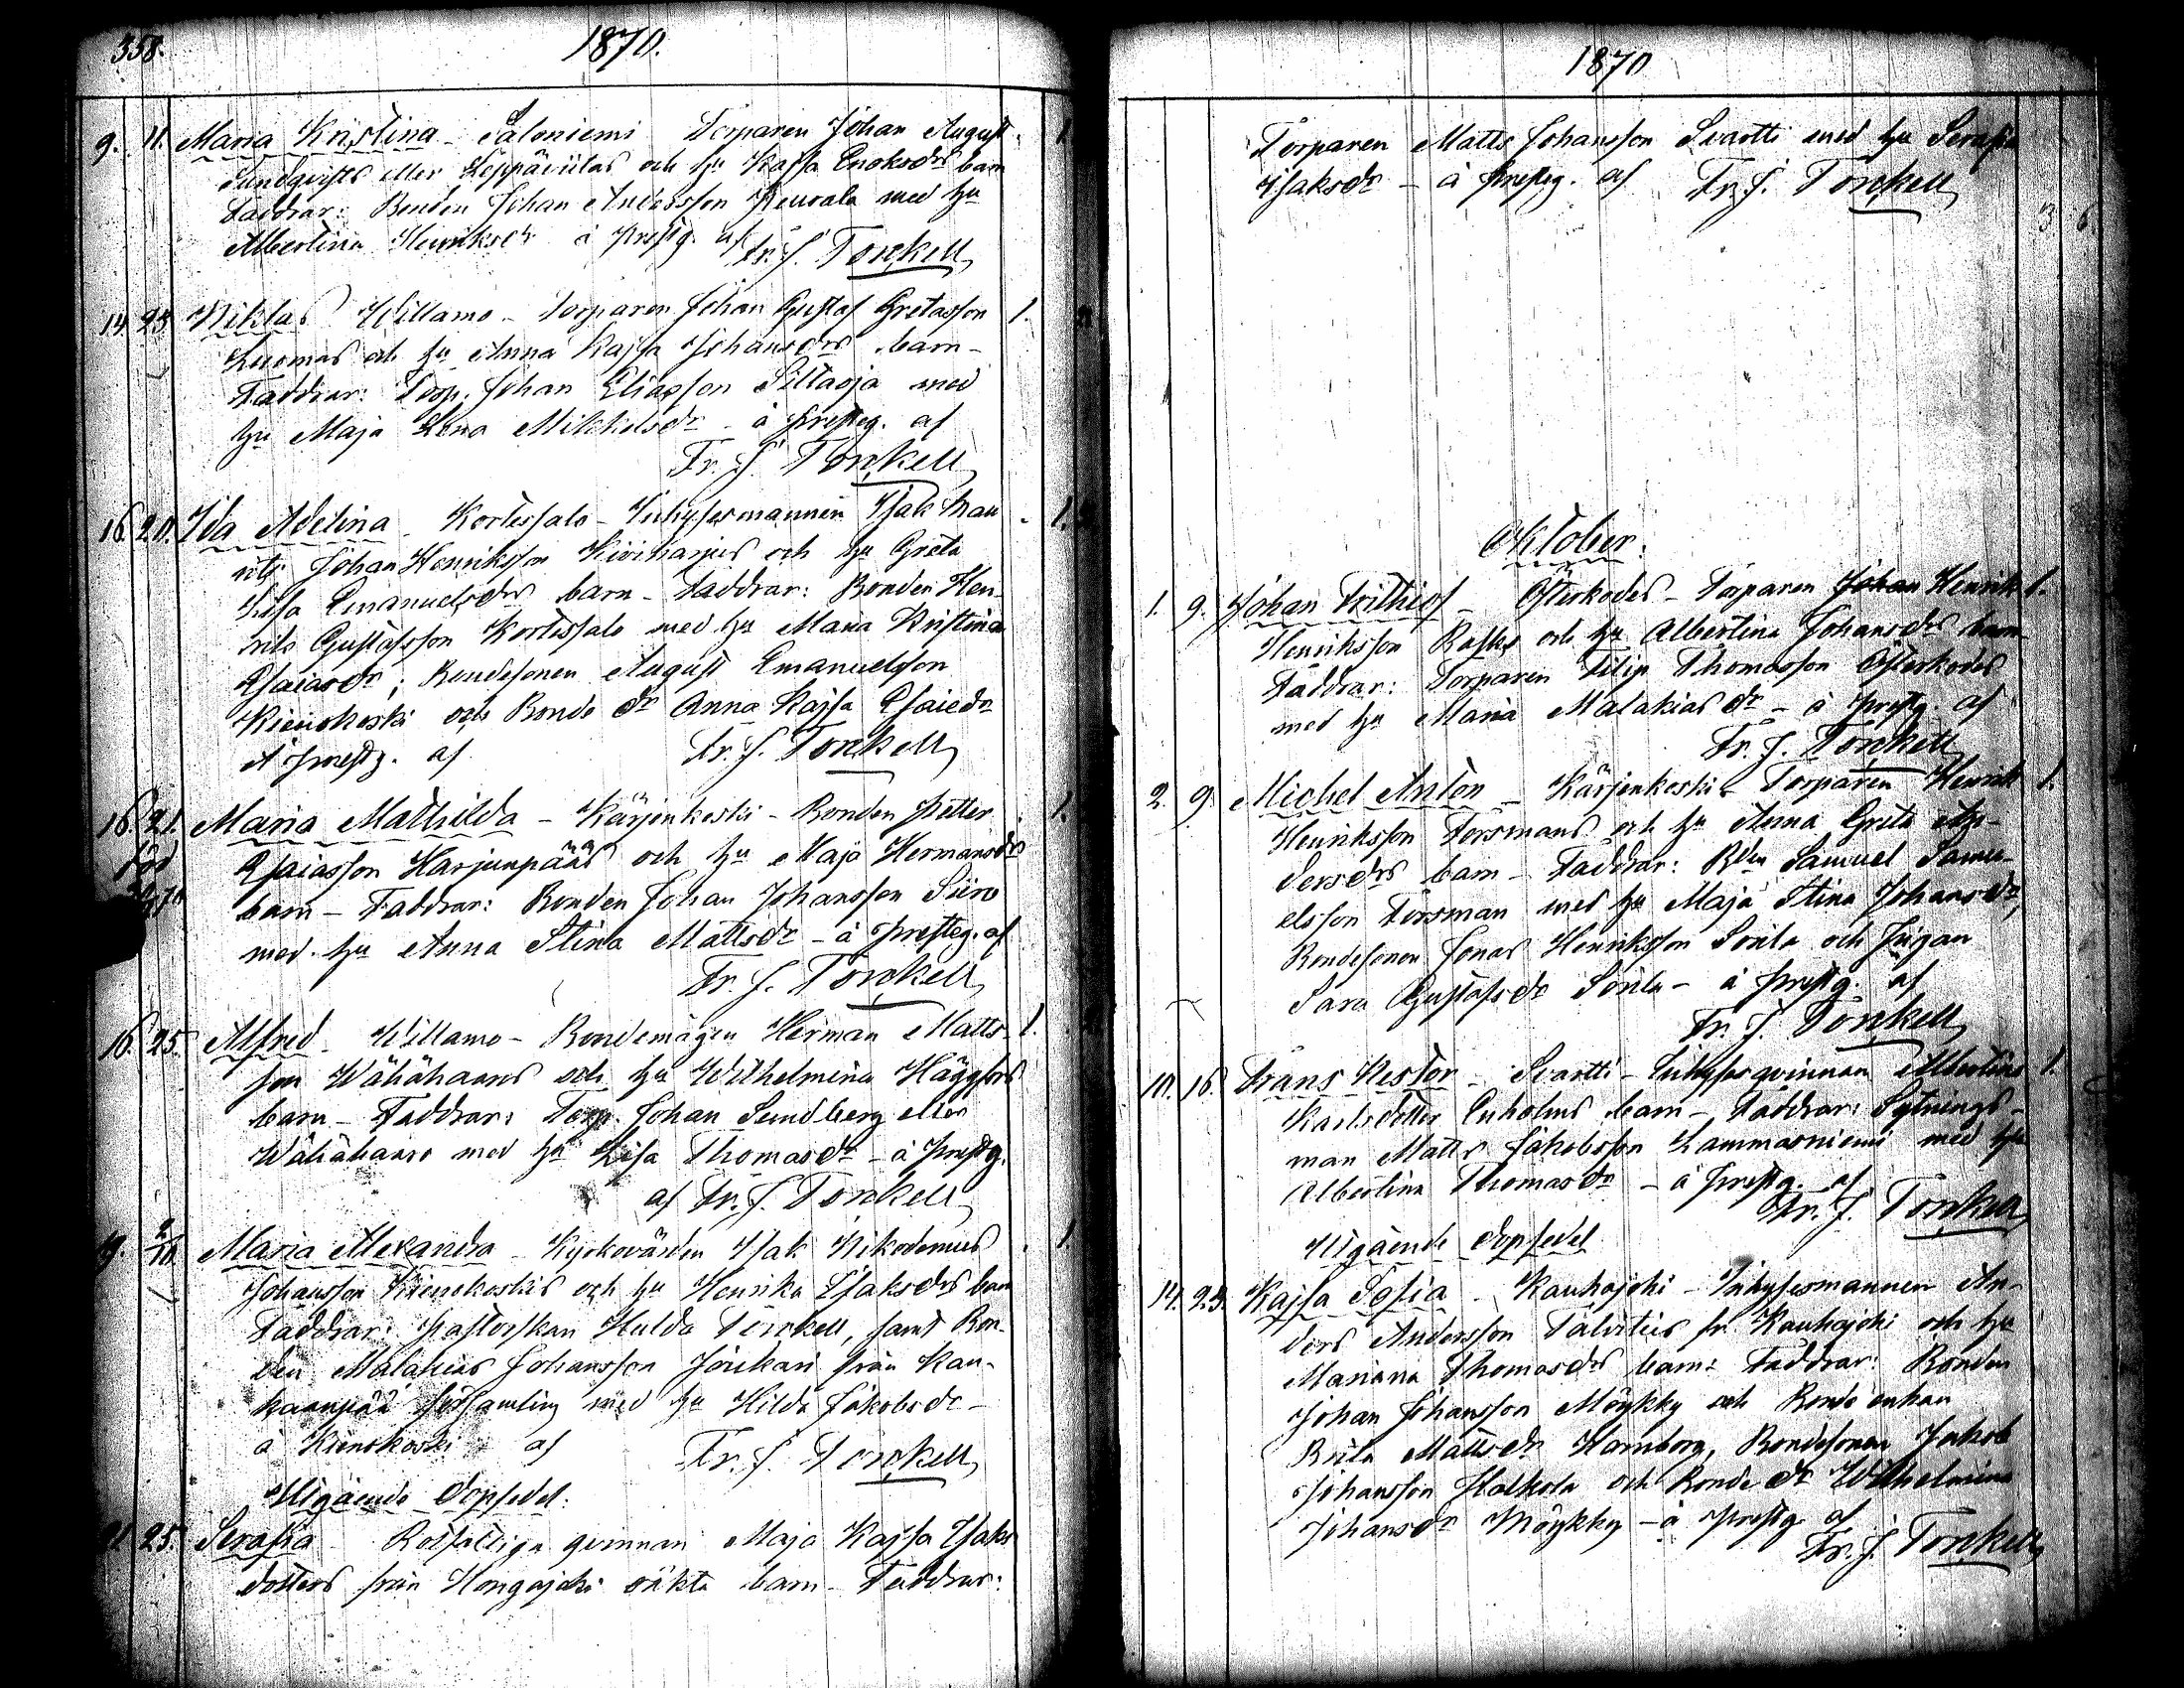 358.
1870.
9. 11. Maria Kristina - Saloniemi Torparen Johan August 1.
Sundqvists eller Leppäviitas och hu Kajsa Enoksdrs barn
Faddrar: Bonden Johan Andersson Neuvala med hu
Albertina Henriksdr å prestg. af Fr. J. Tönkell
14. 25. Niklas Willamo - Torparen Johan Gustaf Gretasson 1.
Luomas och hu Anna Kajsa Johansdrs barn -
Faddrar: Torp. Johan Eliasson Siltaoja med
hu Maja Lena Mikkelsdr - å presteg. af
Fr. J. Tönkell
16. 20. Ida Adelina - Kortessalo - Inhysesmannen Isak 1.
Johan Henriksson Kiviharjus och hu Greta
Lisa Emanuelsdrs barn - Faddrar: Bonden Hen-
rik Gustafsson Kortessalo med hu Maria Kristina
Esaiasdr; Bondesonen August Emanuelsson
Kienokoski och Bonde dr Anna Kajsa Esaiedr
å prestg. af Fr. J. Tönkell
16. 21. Maria Mathilda - Kärjenkoski - Bonden Petter 1.
född
Esaiasson Harjunpääs och hu Maja Hermansdrs
barn - Faddrar: Bonden Johan Johansson Siiro
med hu Anna Stina Mattsdr - å presteg. af
Fr. J. Tönkell
16. 25. Alfred - Willamo - Bondemågen Herman Matts- 1.
son Wähähaars och hu Wilhelmina Häggfors
barn - Faddrar: Torp. Johan Sundberg eller
Wähähaara med hu Lisa Thomasdr - å prestg.
af Fr. J. Tönkell
19. 2/10. Maria Alexandra - Kyrkovärden Isak Nikodemus 1.
Johansson Kienokoskis och hu Henrika Isaksdrs barn
Faddrar: Pastorskan Hulda Tönkell, samt Bon-
den Malakias Johansson Joukari från Kan-
kaanpää församling med hu Hilda Jakobsdr -
å Kienokoski af Fr. J. Tönkell
Utgående dopsedel:
21 25. Serafia - Rotfattiga qvinnan Maja Kajsa Isaks
dotters från Hongajoki oäkta barn - Faddrar:
1870
Torparen Matts Johansson Svartti med hu Serafia
Isaksdr - å prestg. af Fr. J. Tönkell
3 6.
Oktober.
1. 9. Johan Frithiof - Österkodes - Torparen Johan Henrik 1.
Henriksson Rasks och hu Albertina Johansdrs barn
Faddrar: Torparen Filip Thomasson Österkodes
med hu Maria Malakiasdr - å prestg. af
Fr. J. Tönkell
2. 9. Michel Anton - Kärjenkoski - Torparen Henrik 1.
Henriksson Forsmans och hu Anna Greta An-
dersdrs barn - Faddrar: Bden Samuel Samu-
elsson Forsman med hu Maja Stina Johansdr,
Bondesonen Jonas Henriksson Sorila och Pigan
Sara Gustafsdr Sorila - å prestg. af
Fr. J. Tönkell
10. 16. Frans Nestor - Svartti - Inhysesqvinnan Albertina 1.
Karlsdotter Enholms barn - Faddrar: Sytnings-
man Matts Jakobsson Lammasniemi med hu
Albertina Thomasdr - å prestg. af
Fr. J. Tönkell
Utgående dopsedel
14. 23. Kajsa Sofia - Kauhajoki - Inhysesmannen An-
ders Andersson Talvities fr. Kauhajoki och hu
Mariana Thomasdrs barn: Faddrar: Bonden
Johan Johansson Möykky och Bonde enkan
Brita Mattsdr Hamborg, Bondesonen Jakob
Johansson Halkola och Bonde dr Wilhelmina
Johansdr Möykky - å prestg. af
Fr. J. Tönkell